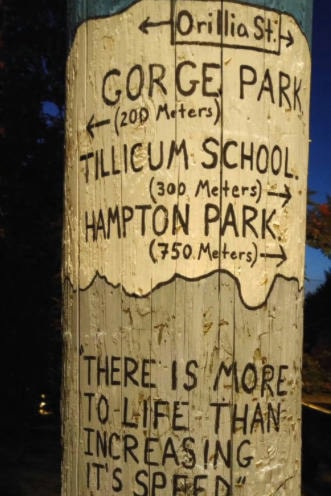 ← Orillia St. →
GORGE PARK
← (200 Meters)
TILLICUM SCHOOL
(300 Meters) →
HAMPTON PARK
(750 Meters) →
"THERE IS MORE
TO LIFE THAN
INCREASING
IT'S SPEED"